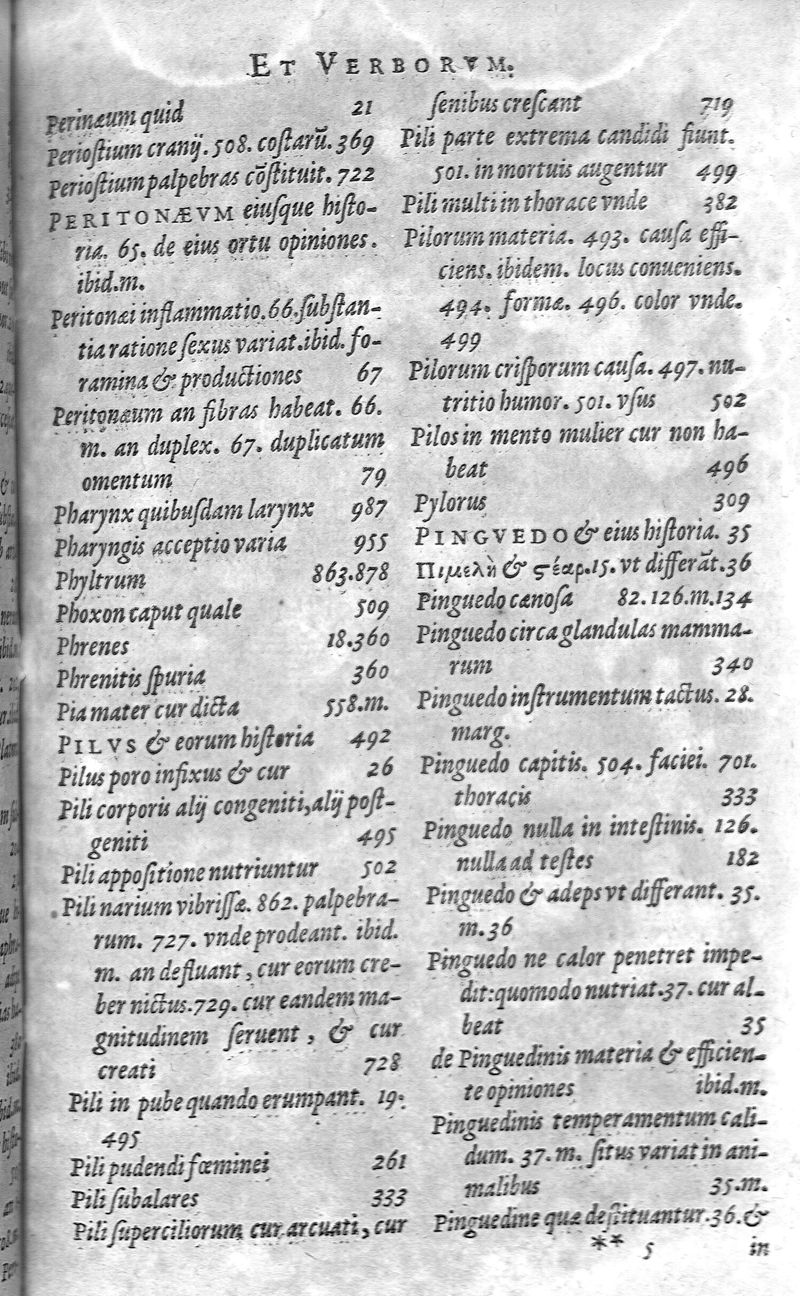 ET VERBORVM.
Perinæum quid 21
Periostium cranij. 508. costarũ. 369
Periostium palpebras cõstituit. 722
PERITONÆVM eiusque histo-
ria. 65. de eius ortu opiniones.
ibid.m.
Peritonæi inflammatio. 66. substan-
tia ratione sexus variat. ibid. fo-
ramina & productiones 67
Peritonæum an fibras habeat. 66.
m. an duplex. 67. duplicatum
omentum 79
Pharynx quibusdam larynx 987
Pharyngis acceptio varia 955
Phyltrum 863.878
Phoxon caput quale 509
Phrenes 18.360
Phrenitis spuria 360
Pia mater cur dicta 558.m.
PILVS & eorum historia 492
Pilus poro infixus & cur 26
Pili corporis alij congeniti, alij post-
geniti 495
Pili appositione nutriuntur 502
Pili narium vibrissæ. 862. palpebra-
rum. 727. vnde prodeant. ibid.
m. an defluant, cur eorum cre-
ber nictus. 729. cur eandem ma-
gnitudinem seruent, & cur
creati 728
Pili in pube quando erumpant. 19.
495
Pili pudendi fœminei 261
Pili subalares 333
Pili superciliorum cur arcuati, cur
senibus crescant 719
Pili parte extrema candidi fiunt.
501. in mortuis augentur 499
Pili multi in thorace vnde 382
Pilorum materia. 493. causa effi-
ciens. ibidem. locus conueniens.
494. formæ. 496. color vnde.
499
Pilorum crisporum causa. 497. nu-
tritio humor. 501. vsus 502
Pilos in mento mulier cur non ha-
beat 496
Pylorus 309
PINGVEDO & eius historia. 35
Πιμελὴ & ϛέαρ. 15. vt differãt. 36
Pinguedo cænosa 82.126.m.134
Pinguedo circa glandulas mamma-
rum 340
Pinguedo instrumentum tactus. 28.
marg.
Pinguedo capitis. 504. faciei. 701.
thoracis 333
Pinguedo nulla in intestinis. 126.
nulla ad testes 182
Pinguedo & adeps vt differant. 35.
m. 36
Pinguedo ne calor penetret impe-
dit: quomodo nutriat. 37. cur al-
beat 35
de Pinguedinis materia & efficien-
te opiniones ibid.m.
Pinguedinis temperamentum cali-
dum. 37. m. situs variat in ani-
malibus 35.m.
Pinguedine quæ destituantur. 36. &
** 5 in